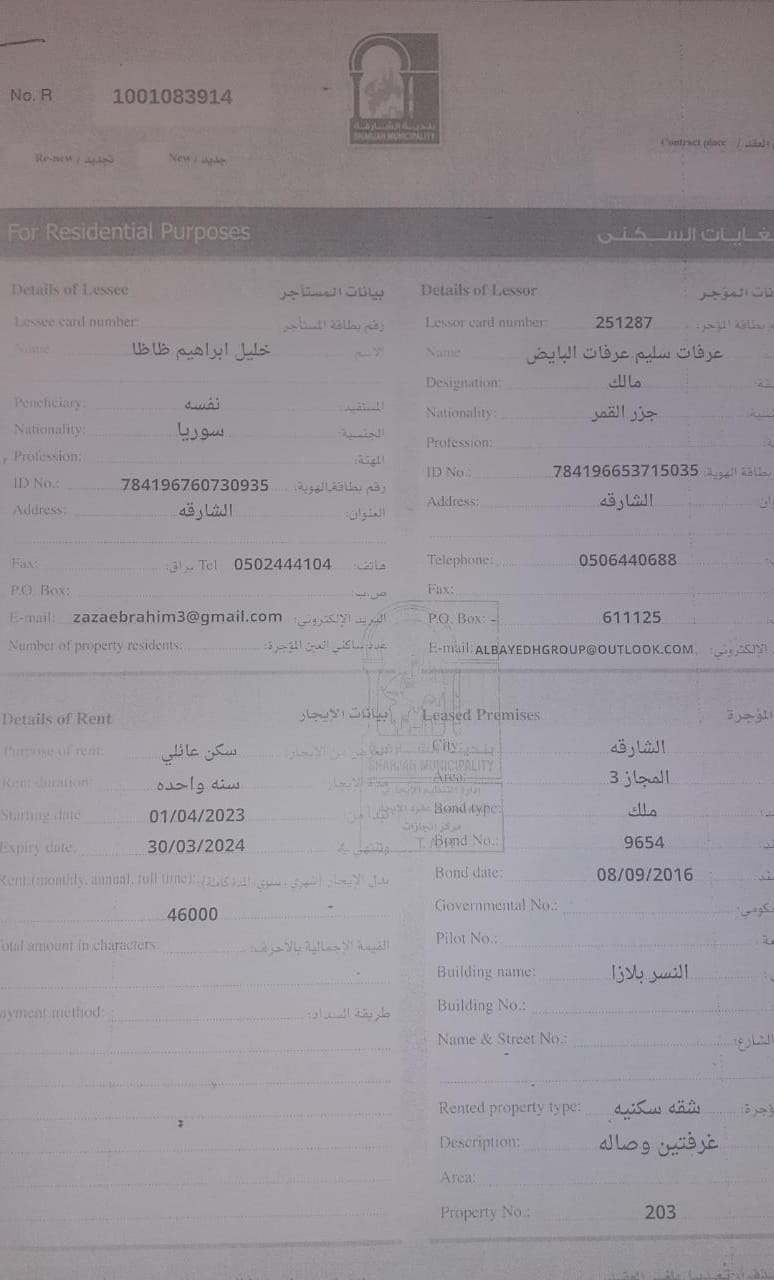 No. R 1001083914
بلدية الشارقة
SHARJAH MUNICIPALITY
Re-new / تجديد New / جديد
Contract place / العقد
For Residential Purposes
لغايات السكنى
Details of Lessee بيانات المستأجر
Lessee card number: رقم بطاقة المستأجر
Name خليل ابراهيم ظاظا الاسم
Penchciary: نفسه المستفيد:
Nationality: سوريا الجنسية:
Profession: المهنة:
ID No.: 784196760730935 رقم بطاقة الهوية:
Address: الشارقه العنوان:
Fax: براق: Tel 0502444104 هاتف:
P.O. Box: ص.ب:
E-mail: zazaebrahim3@gmail.com البريد الإلكتروني:
Number of property residents: عدد ساكني العين المؤجرة:
Details of Lessor نات المؤجر
Lessor card number: 251287 م بطاقة المؤجر:
Name عرفات سليم عرفات البايض
Designation: مالك
Nationality: جزر القمر
Profession:
ID No.. 784196653715035 بطاقة الهوية:
Address: الشارقه
Telephone: 0506440688
Fax:
P.O. Box: - 611125
E-mail: ALBAYEDHGROUP@OUTLOOK.COM الإلكتروني:
Details of Rent بيانات الايجار
Purpose of rent: سكن عائلي من الايجار
Rent duration: سنه واحده مدة الايجار
Starting date 01/04/2023
Expiry date: 30/03/2024 وتنتهي في
Rent:(monthly, annual, full time): بدل الايجار (شهري ، سنوي، المدة كاملة):
46000
otal amount in characters: القيمة الإجمالية بالأحرف:
ayment method: طريقة السداد:
SHARJAH MUNICIPALITY
Leased Premises المؤجرة
City: الشارقه
Area: المجاز 3
Bond type: ملك
Bond No.: 9654
Bond date: 08/09/2016
Governmental No.:
Pilot No.:
Building name: النسر بلازا
Building No.:
Name & Street No.: الشارع:
Rented property type: شقه سكنيه
Description: غرفتين وصاله
Area:
Property No.: 203